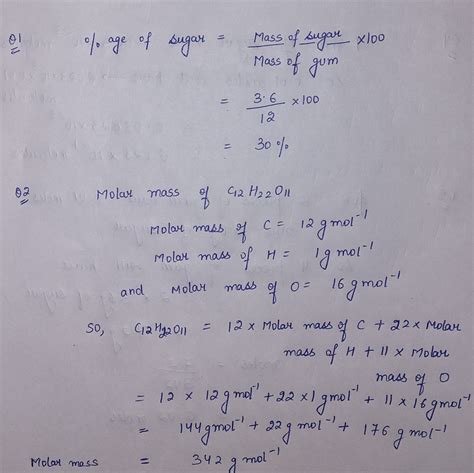 Q1 % age of sugar = Mass of sugar / Mass of gum ×100
= 3.6 / 12 ×100
= 30 %
Q2 Molar mass of C12H22O11
Molar mass of C = 12 g mol⁻¹
Molar mass of H = 1 g mol⁻¹
and Molar mass of O = 16 g mol⁻¹
So, C12H22O11 = 12 × Molar mass of C + 22 × Molar
mass of H + 11 × Molar
mass of O
= 12 × 12 g mol⁻¹ + 22 × 1 g mol⁻¹ + 11 × 16 g mol⁻¹
= 144 g mol⁻¹ + 22 g mol⁻¹ + 176 g mol⁻¹
Molar mass = 342 g mol⁻¹